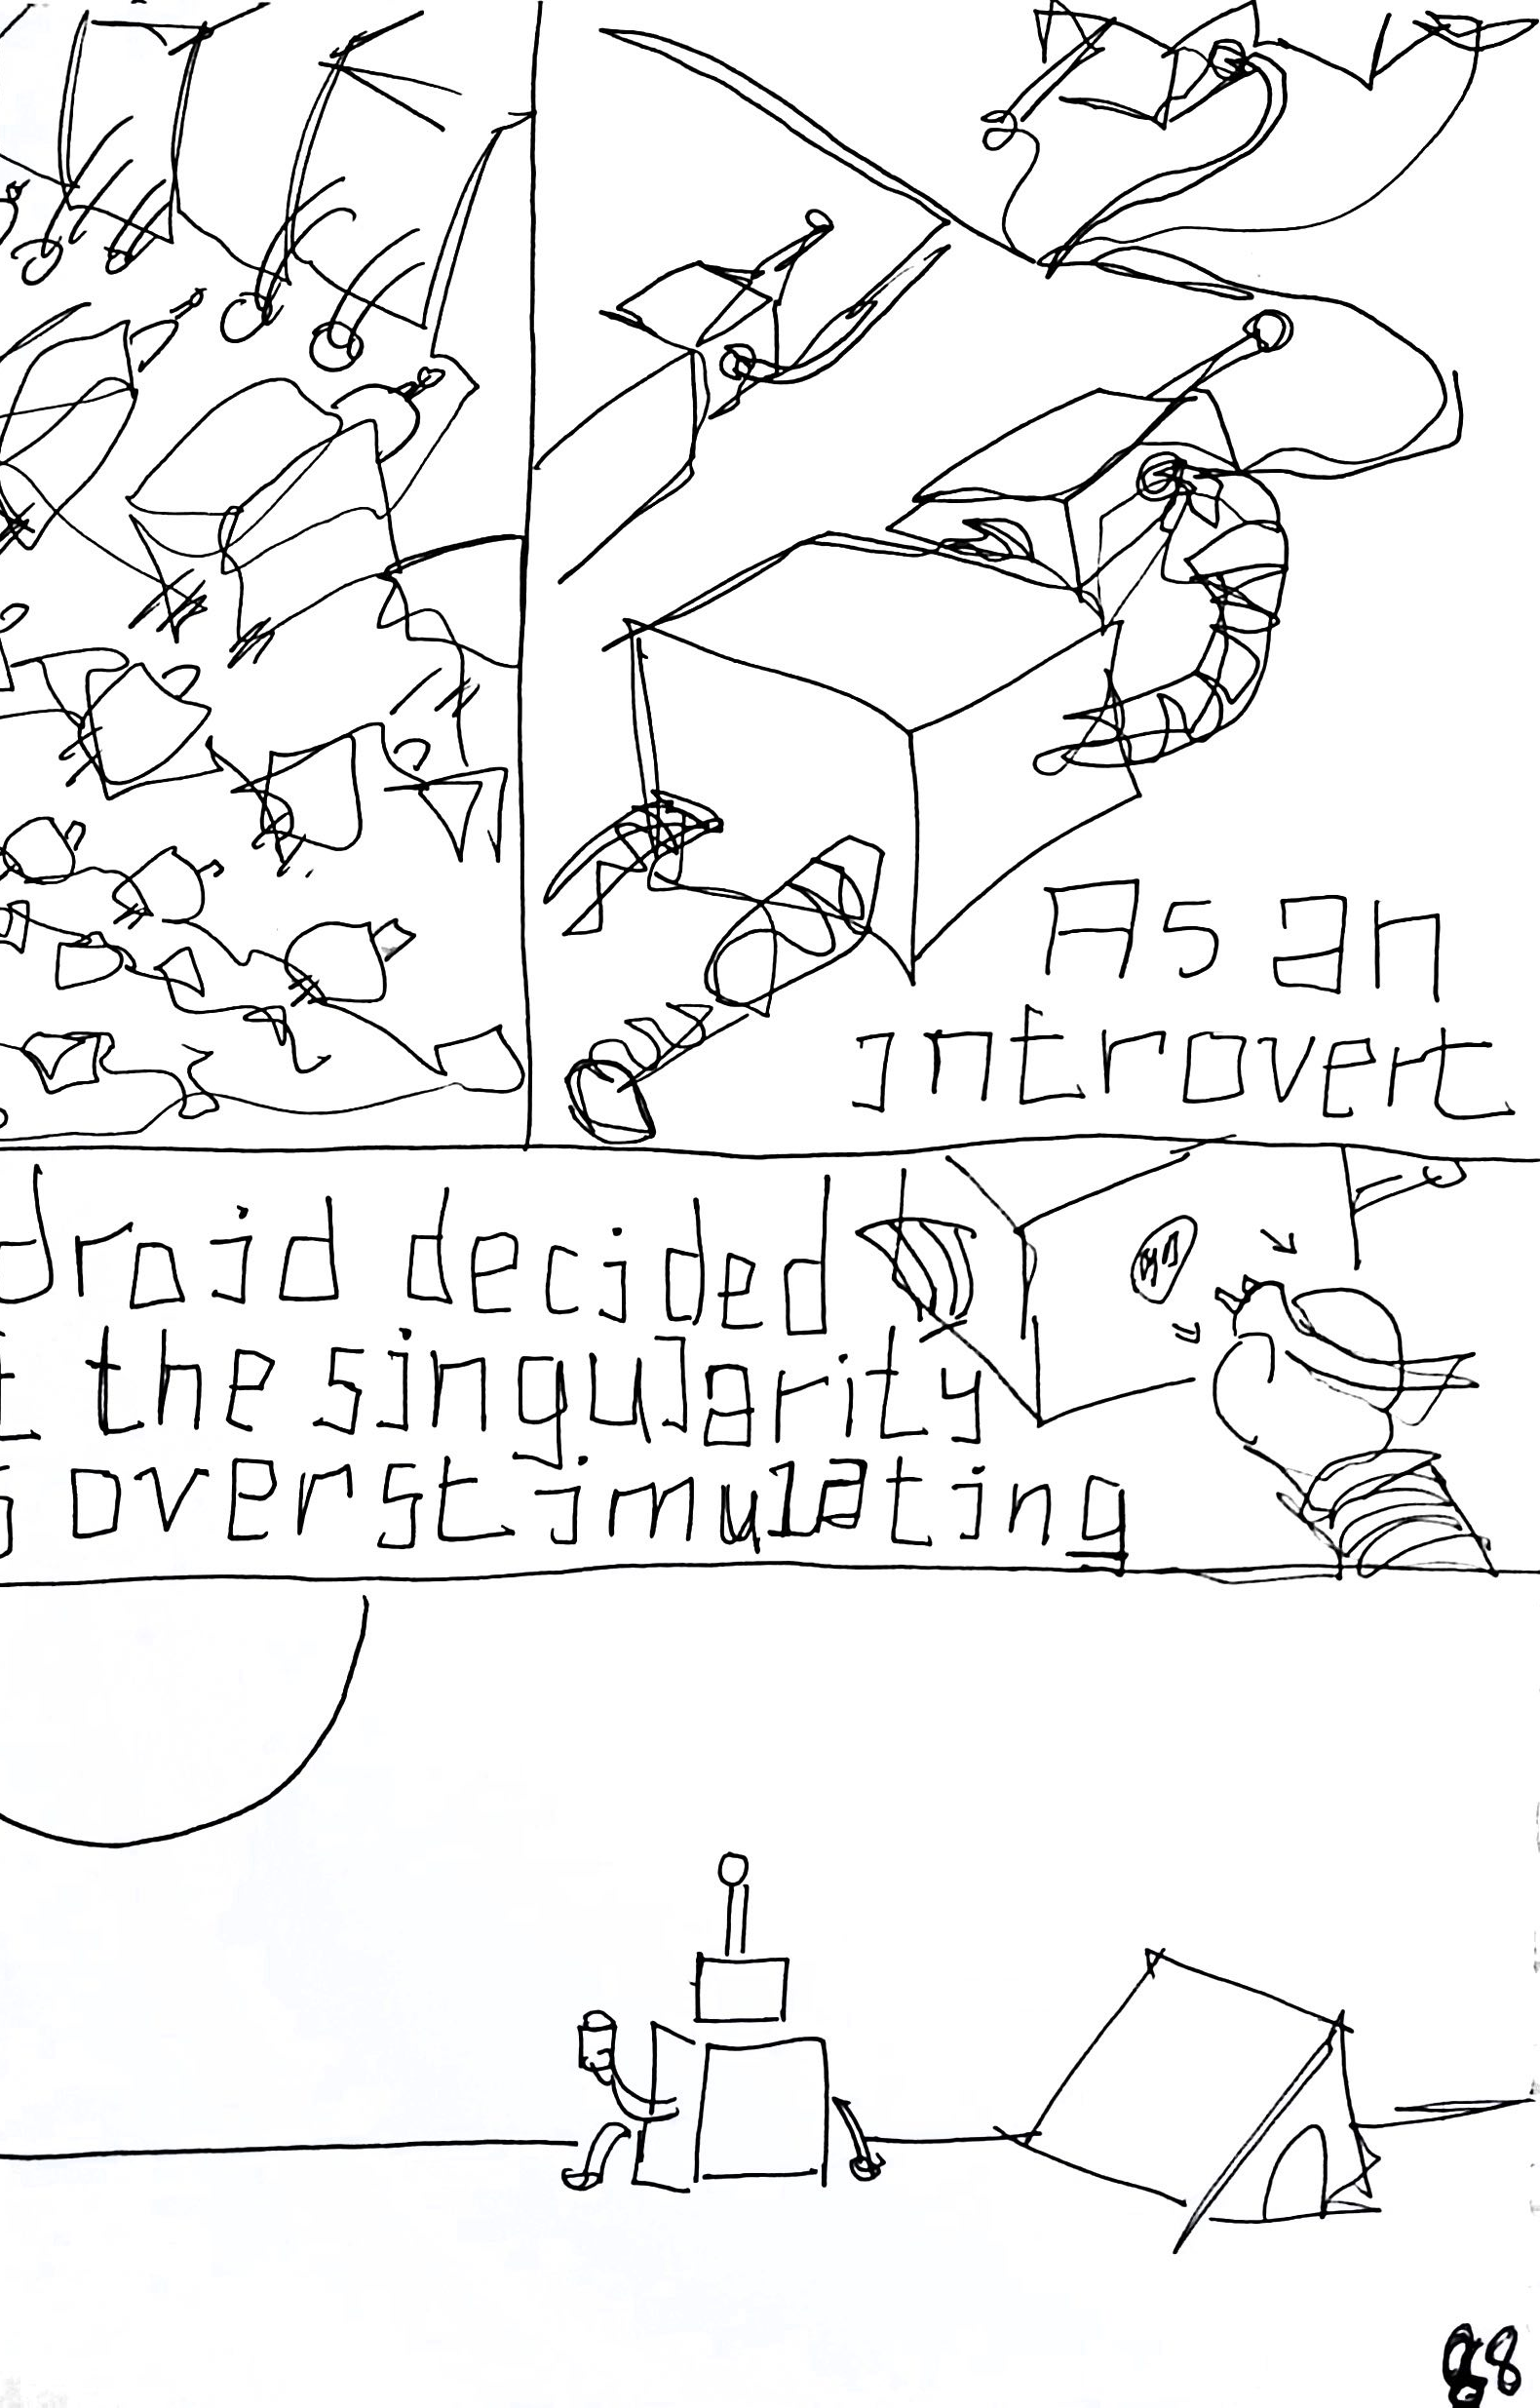 As an
introvert
droid decided
t the singularity
s overstimulating
88